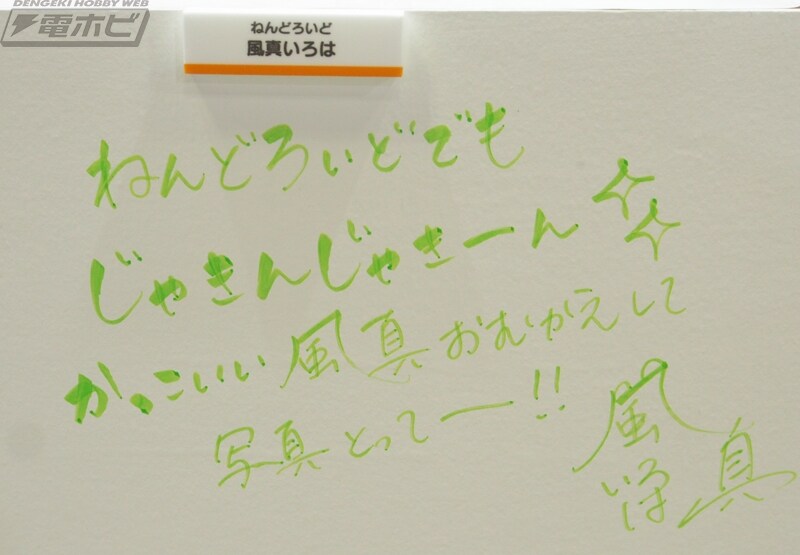 DENGEKI HOBBY WEB
電ホビ
ねんどろいど
風真いろは
ねんどろぃどでも
じゃきんじゃきーん
かっこいい風真おむかえして
写真とってー!!
風真
いろは